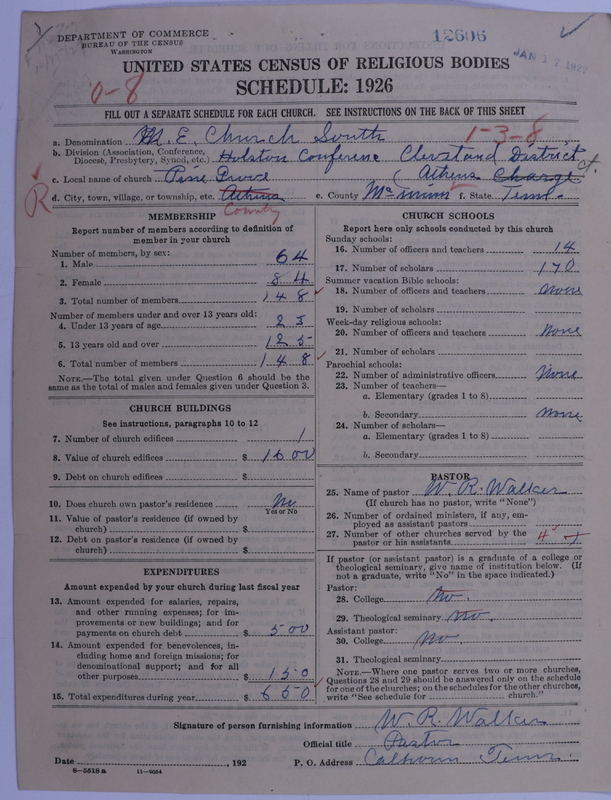 DEPARTMENT OF COMMERCE
BUREAU OF THE CENSUS
WASHINGTON
12606
JAN 17 1927
UNITED STATES CENSUS OF RELIGIOUS BODIES
SCHEDULE: 1926
0-8
FILL OUT A SEPARATE SCHEDULE FOR EACH CHURCH. SEE INSTRUCTIONS ON THE BACK OF THIS SHEET
a. Denomination M. E. Church South 1-3-8
b. Division (Association, Conference, Diocese, Presbytery, Synod, etc.) Holston Conference Cleveland District
c. Local name of church (Athens Charge Ct.
R d. City, town, village, or township, etc. Athens e. County McMinn f. State Tenn.
Country
MEMBERSHIP
Report number of members according to definition of
member in your church
Number of members, by sex:
1. Male 64
2. Female 84
3. Total number of members 148
Number of members under and over 13 years old:
4. Under 13 years of age 23
5. 13 years old and over 125
6. Total number of members 148
NOTE.—The total given under Question 6 should be the
same as the total of males and females given under Question 3.
CHURCH BUILDINGS
See instructions, paragraphs 10 to 12
7. Number of church edifices 1
8. Value of church edifices $ 1600
9. Debt on church edifices $
10. Does church own pastor's residence No
Yes or No
11. Value of pastor's residence (if owned by
church) $
12. Debt on pastor's residence (if owned by
church) $
EXPENDITURES
Amount expended by your church during last fiscal year
13. Amount expended for salaries, repairs,
and other running expenses; for im-
provements or new buildings; and for
payments on church debt $ 500
14. Amount expended for benevolences, in-
cluding home and foreign missions; for
denominational support; and for all
other purposes $ 150
15. Total expenditures during year $ 650
CHURCH SCHOOLS
Report here only schools conducted by this church
Sunday schools:
16. Number of officers and teachers 14
17. Number of scholars 170
Summer vacation Bible schools:
18. Number of officers and teachers None
19. Number of scholars
Week-day religious schools:
20. Number of officers and teachers None
21. Number of scholars
Parochial schools:
22. Number of administrative officers None
23. Number of teachers—
a. Elementary (grades 1 to 8)
b. Secondary None
24. Number of scholars—
a. Elementary (grades 1 to 8)
b. Secondary
PASTOR
25. Name of pastor W. R. Walker
(If church has no pastor, write "None")
26. Number of ordained ministers, if any, em-
ployed as assistant pastors
27. Number of other churches served by the
pastor or his assistants 4
If pastor (or assistant pastor) is a graduate of a college or
theological seminary, give name of institution below. (If
not a graduate, write "No" in the space indicated.)
Pastor:
28. College No.
29. Theological seminary No.
Assistant pastor:
30. College No
31. Theological seminary
NOTE.—Where one pastor serves two or more churches,
Questions 28 and 29 should be answered only on the schedule
for one of the churches; on the schedules for the other churches,
write "See schedule for church."
Signature of person furnishing information W. R. Walker
Official title Pastor
Date , 192 P. O. Address Calhoun Tenn
8-5518a 11-9054